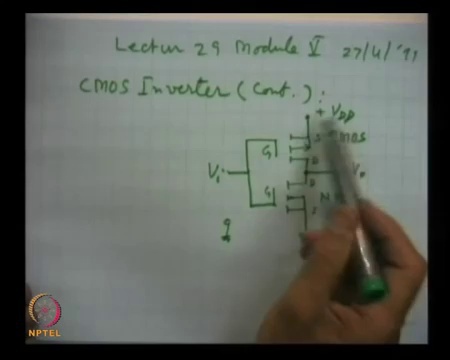 Lectur 29 Module V 27/4/'91
CMOS Inverter (Cont.) :
+ VDD
S MOS
G
D
D
Vi
Vo
G
N
S
NPTEL